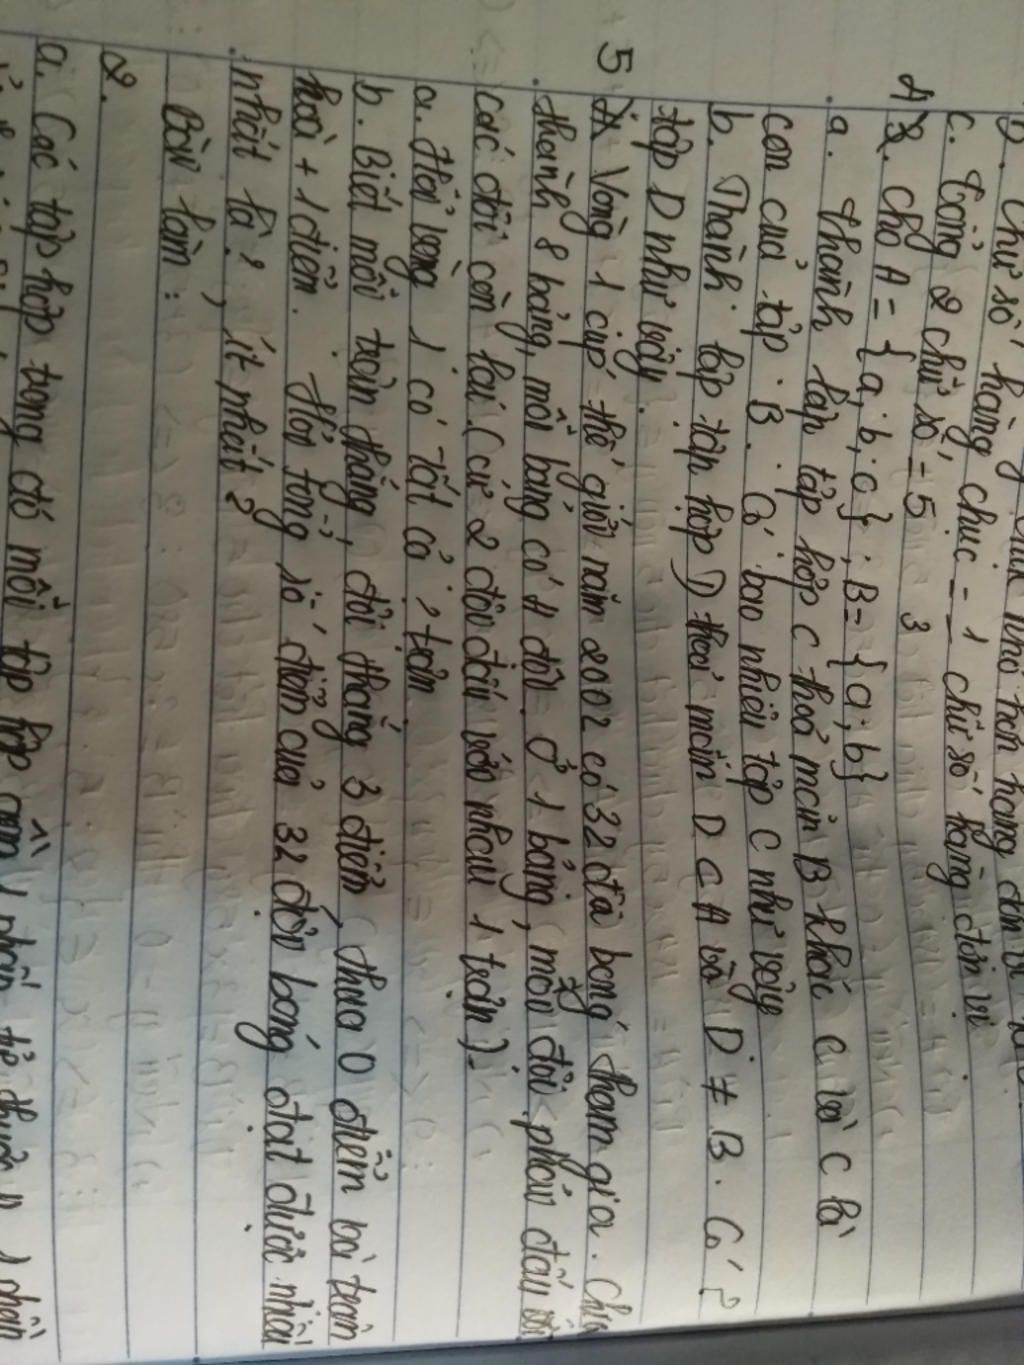 c. tổng 2 chữ số = 5
4
2. cho A = {a; b; c} ; B = {a; b}
a. thành lập tập hợp C thoả mãn B khác C và C là
con của tập B. Có bao nhiêu tập C như vậy
b. Thành lập tập hợp D thoả mãn D ⊂ A và D ≠ B. Có ?
tập D như vậy.
5
Vòng 1 cúp thế giới năm 2002 có 32 đội bóng tham gia. Chia
thành 8 bảng, mỗi bảng có 4 đội. Ở 1 bảng, mỗi đội phải đấu với
các đội còn lại. (cứ 2 đội đấu với nhau 1 trận).
a. Hỏi vòng 1 có tất cả ? trận
b. Biết mỗi trận thắng, đội thắng 3 điểm, thua 0 điểm và trận
hoà + 1 điểm. Hỏi tổng số điểm của 32 đội bóng đạt được nhiều
nhất là ?, ít nhất ?
Bài làm :
2.
a. Các tập hợp trong đó mỗi tập hợp gồm 1 phần tử thuộc 1 phần